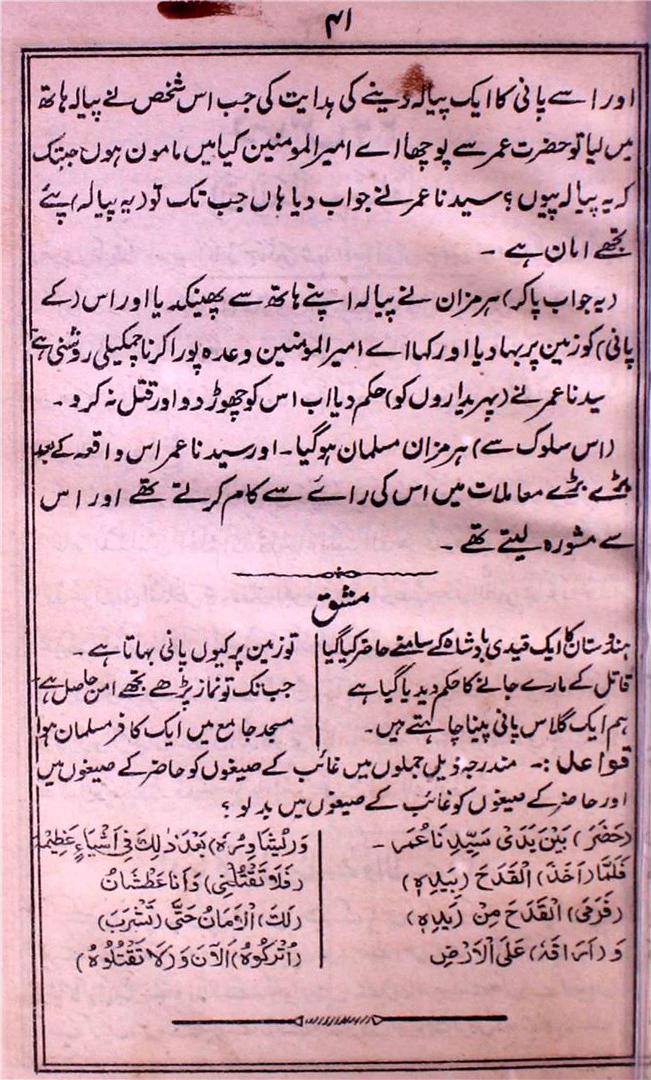 ۴۱
اور اسے پانی کا ایک پیالہ دینے کی ہدایت کی جب اس شخص نے پیالہ ہاتھ
میں لیا تو حضرت عمر سے پوچھا اے امیرالمومنین کیا میں مامون ہوں جبتک
کہ یہ پیالہ پیوں؟ سیدنا عمر نے جواب دیا ہاں جب تک تو (یہ پیالہ) پئے
تجھے امان ہے ۔
(یہ جواب پاکر) ہرمزان نے پیالہ اپنے ہاتھ سے پھینکدیا اور اس (کے
پانی) کو زمین پر بہا دیا اور کہا اے امیرالمومنین وعدہ پورا کرنا چمکیلی روشنی ہے
سیدنا عمر نے (پہریداروں کو) حکم دیا اب اس کو چھوڑ دو اور قتل نہ کرو ۔
(اس سلوک سے) ہرمزان مسلمان ہوگیا ۔ اور سیدنا عمر اس واقعہ کے بعد
بڑے بڑے معاملات میں اس کی رائے سے کام کرتے تھے اور اس
سے مشورہ لیتے تھے ۔
مشق
ہندوستان کا ایک قیدی بادشاہ کے سامنے حاضر کیا گیا
قاتل کے مارے جانے کا حکم دیدیا گیا ہے
ہم ایک گلاس پانی پینا چاہتے ہیں ۔
تو زمین پر کیوں پانی بہاتا ہے ۔
جب تک تو نماز پڑھے تجھے امن حاصل ہے
مسجد جامع میں ایک کافر مسلمان ہوا
قواعد :۔ مندرجہ ذیل جملوں میں غائب کے صیغوں کو حاضر کے صیغوں میں
اور حاضر کے صیغوں کو غائب کے صیغوں میں بدلو ؟
(حَضَرَ) بَیْنَ یَدَیْ سَیِّدِنَا عُمَرَ ۔
فَلَمَّا (اَخَذَ) الْقَدَحَ (بِیَدِہٖ)
(فَرَمَی) الْقَدَحَ مِنْ (یَدِہٖ)
وَ (اَرَاقَہٗ) عَلَی الْاَرْضِ
وَ (یُشَاوِرُہٗ) بَعْدَ ذٰلِکَ فِیْ اَشْیَاءٍ عَظِیْمَۃٍ
(فَلَا تَقْتُلْنِیْ) وَ اَنَا عَطْشَانُ
(لَکَ) الْاَمَانُ حَتّٰی (تَشْرَبَ)
(اُتْرُکُوْہُ) اَلْآنَ وَ (لَا تَقْتُلُوْہُ)